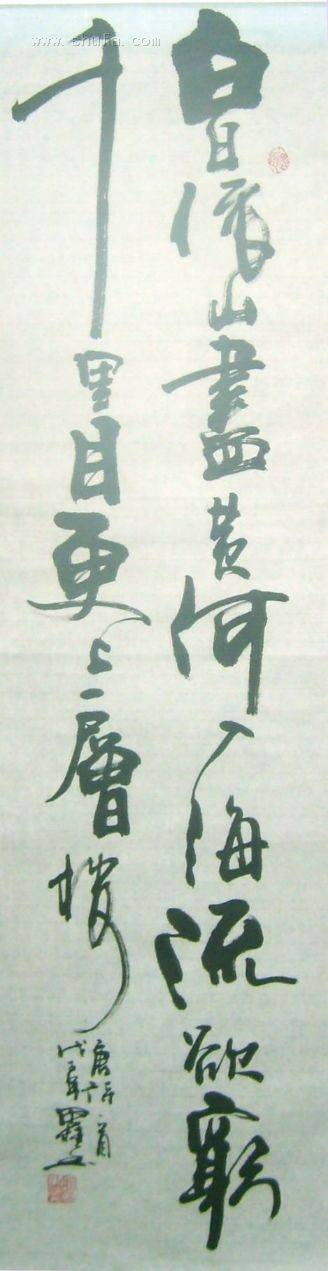 白日依山盡黄河入海流欲窮
千里目更上一層樓
唐詩一首
www.shufa.com